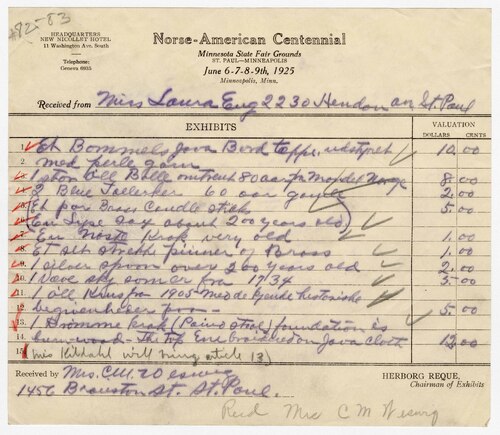 #82-83
HEADQUARTERS
NEW NICOLLET HOTEL
11 Washington Ave. South
Telephone:
Geneva 6835
Norse-American Centennial
Minnesota State Fair Grounds
ST. PAUL—MINNEAPOLIS
June 6-7-8-9th, 1925
Minneapolis, Minn.
Received from Miss Laura Eng 2230 Hendon av St. Paul
EXHIBITS
VALUATION
DOLLARS CENTS
1. Et Bommels Java Bord teppe, udstyret 10 00
2. med perle garn
1 stor Öll Bolle omtrent 80 aar fra Norge 8.00
2 Blue Tallerker 60 aar gamle 2.00
Et par Brass Candle sticks 5.00
En Lyse Sax about 200 years old
En krak very old 1.00
Et pinner of Brass 1.00
9. 1 silver spoon over 200 years old 2.00
10. 1 from 1734 5.00
11. 1 Öll Krus fra 1905 med historiske
12. begivenheter 5.00
13. 1 Dromme krak foundation is
14. wood - The top Embroidered on Java Cloth 12 00
15. (Mrs Kildahl will bring article 13)
Received by Mrs. C.M. Weswig
1456 Branston St. St. Paul.
HERBORG REQUE,
Chairman of Exhibits
Recd Mrs C M Weswig